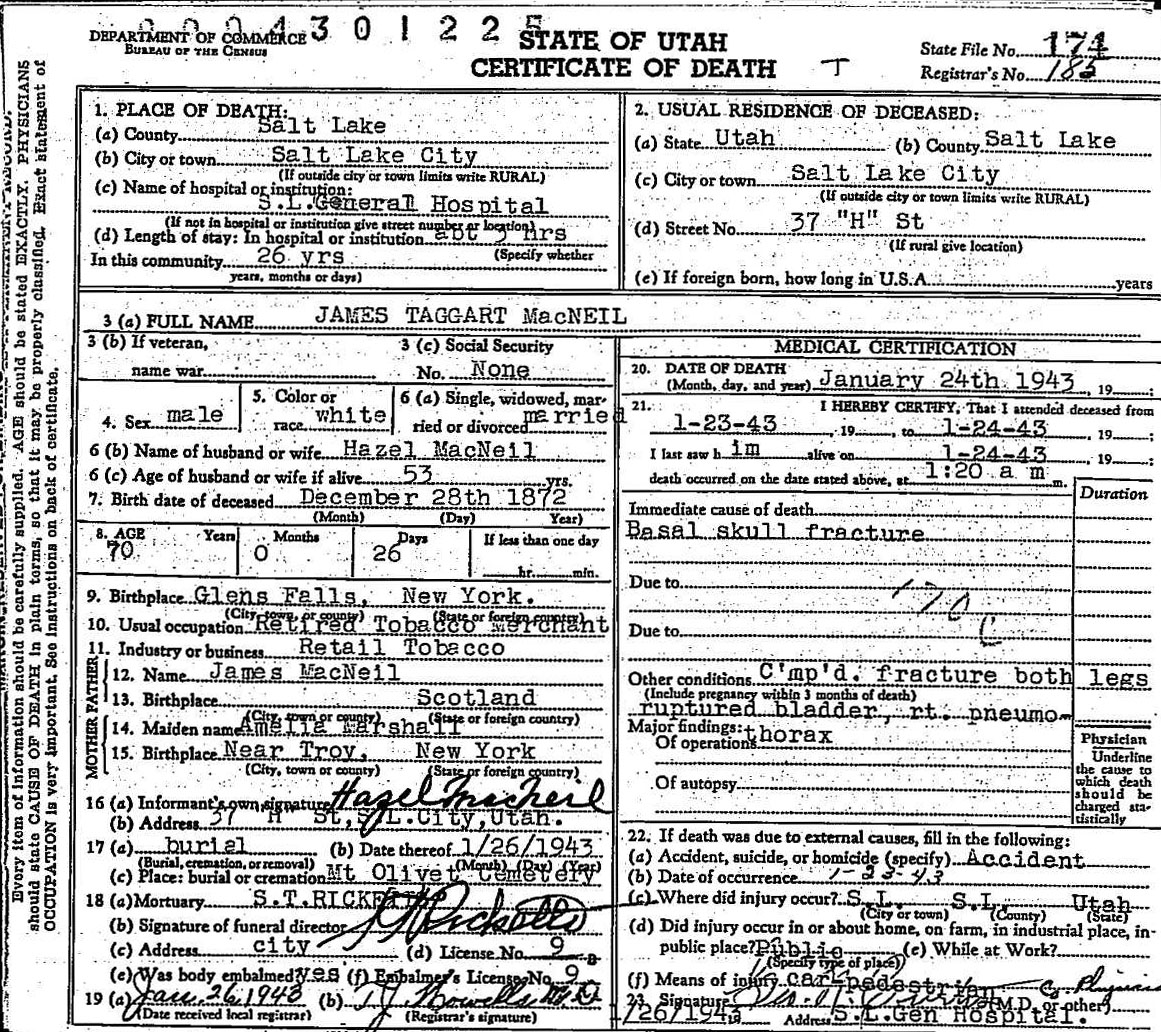 0004301225
DEPARTMENT OF COMMERCE
BUREAU OF THE CENSUS
STATE OF UTAH
CERTIFICATE OF DEATH T
State File No. 174
Registrar's No. 185
Every item of information should be carefully supplied. AGE should be stated EXACTLY. PHYSICIANS
should state CAUSE OF DEATH in plain terms, so that it may be properly classified. Exact statement of
OCCUPATION is very important. See instructions on back of certificate.
1. PLACE OF DEATH:
(a) County Salt Lake
(b) City or town Salt Lake City
(If outside city or town limits write RURAL)
(c) Name of hospital or institution:
S.L.General Hospital
(If not in hospital or institution give street number or location)
(d) Length of stay: In hospital or institution abt hrs
(Specify whether
In this community 26 yrs
years, months or days)
2. USUAL RESIDENCE OF DECEASED:
(a) State Utah (b) County Salt Lake
(c) City or town Salt Lake City
(If outside city or town limits write RURAL)
(d) Street No. 37 "H" St
(If rural give location)
(e) If foreign born, how long in U.S.A. years
3 (a) FULL NAME JAMES TAGGART MacNEIL
3 (b) If veteran,
name war
3 (c) Social Security
No. None
4. Sex male
5. Color or
race white
6 (a) Single, widowed, mar-
ried or divorced married
6 (b) Name of husband or wife Hazel MacNeil
6 (c) Age of husband or wife if alive 53 yrs.
7. Birth date of deceased December 28th 1872
(Month) (Day) Year)
8. AGE Years Months Days If less than one day
70 0 26
hr. min.
9. Birthplace Glens Falls, New York.
(City, town, or county) (State or foreign country)
10. Usual occupation Retired Tobacco Merchant
11. Industry or business Retail Tobacco
FATHER
12. Name James MacNeil
13. Birthplace Scotland
(City, town or county) (State or foreign country)
MOTHER
14. Maiden name Amelia Marshall
15. Birthplace Near Troy, New York
(City, town or county) (State or foreign country)
16 (a) Informant's own signature Hazel MacNeil
(b) Address 37 H St, S.L.City, Utah.
17 (a) burial (b) Date thereof 1/26/1943
(Burial, cremation, or removal) (Month) (Day) (Year)
(c) Place: burial or cremation Mt Olivet Cemetery
18 (a) Mortuary S.T.RICKETTS
(b) Signature of funeral director
(c) Address city (d) License No. 9
(e) Was body embalmed? yes (f) Embalmer's License No. 9
19 (a) Jan. 26 1943 (b)
(Date received local registrar) (Registrar's signature)
MEDICAL CERTIFICATION
20. DATE OF DEATH
(Month, day, and year) January 24th 1943, 19 ;
21. I HEREBY CERTIFY, That I attended deceased from
1-23-43, 19 , to 1-24-43, 19 ;
I last saw h im alive on 1-24-43, 19 ;
death occurred on the date stated above, at 1:20 a m m.
Duration
Immediate cause of death
Basal skull fracture
Due to
170 C
Due to
Other conditions C'mp'd. fracture both legs
(Include pregnancy within 3 months of death)
ruptured bladder, rt. pneumo-
Major findings: thorax
Of operations
Of autopsy
Physician
Underline
the cause to
which death
should be
charged sta-
tistically
22. If death was due to external causes, fill in the following:
(a) Accident, suicide, or homicide (specify) Accident
(b) Date of occurrence 1-23-43
(c) Where did injury occur? S.L. S.L. Utah
(City or town) (County) (State)
(d) Did injury occur in or about home, on farm, in industrial place, in-
public place? Public (e) While at Work?
(Specify type of place)
(f) Means of injury car-pedestrian
23. Signature (M.D. or other)
1/26/1943 19 Address S.L.Gen Hospital.